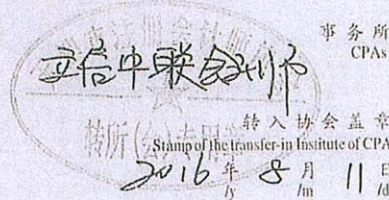 事务所
CPAs
立信中联会计师
转所(专用
转入协会盖章
Stamp of the transfer-in Institute of CPA
2016年8月11日
/y /m /d